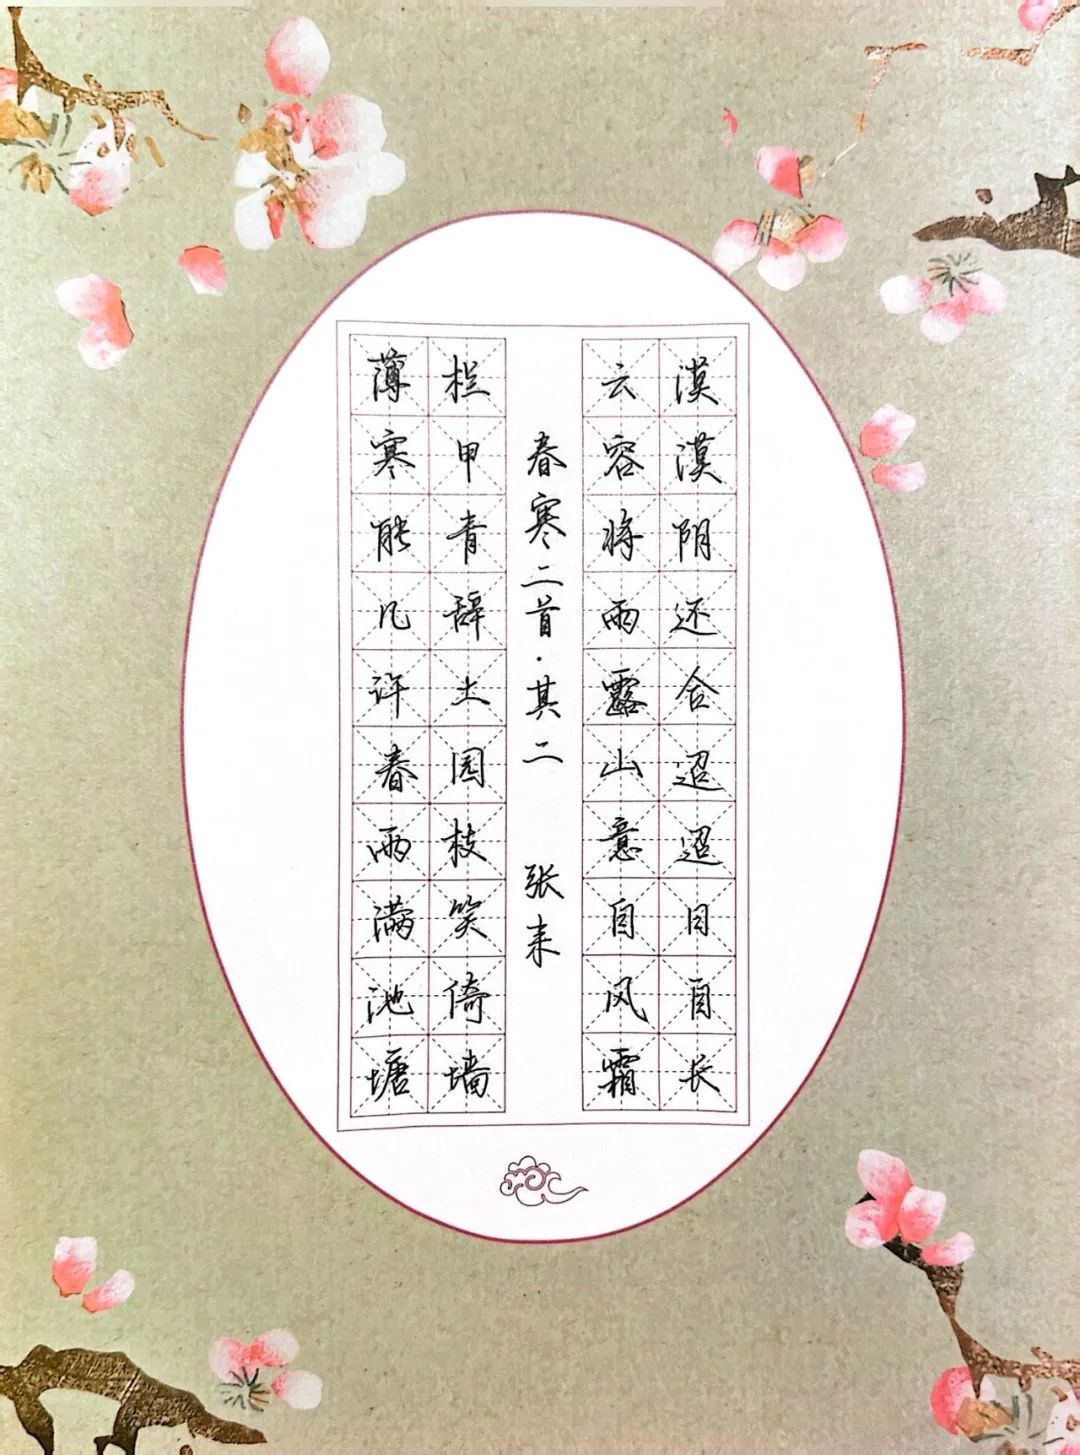 漠漠阴还合迢迢日自长
云容将雨露山意自风霜
春寒二首·其二 张耒
栏甲青辞土园枝笑倚墙
薄寒能几许春雨满池塘